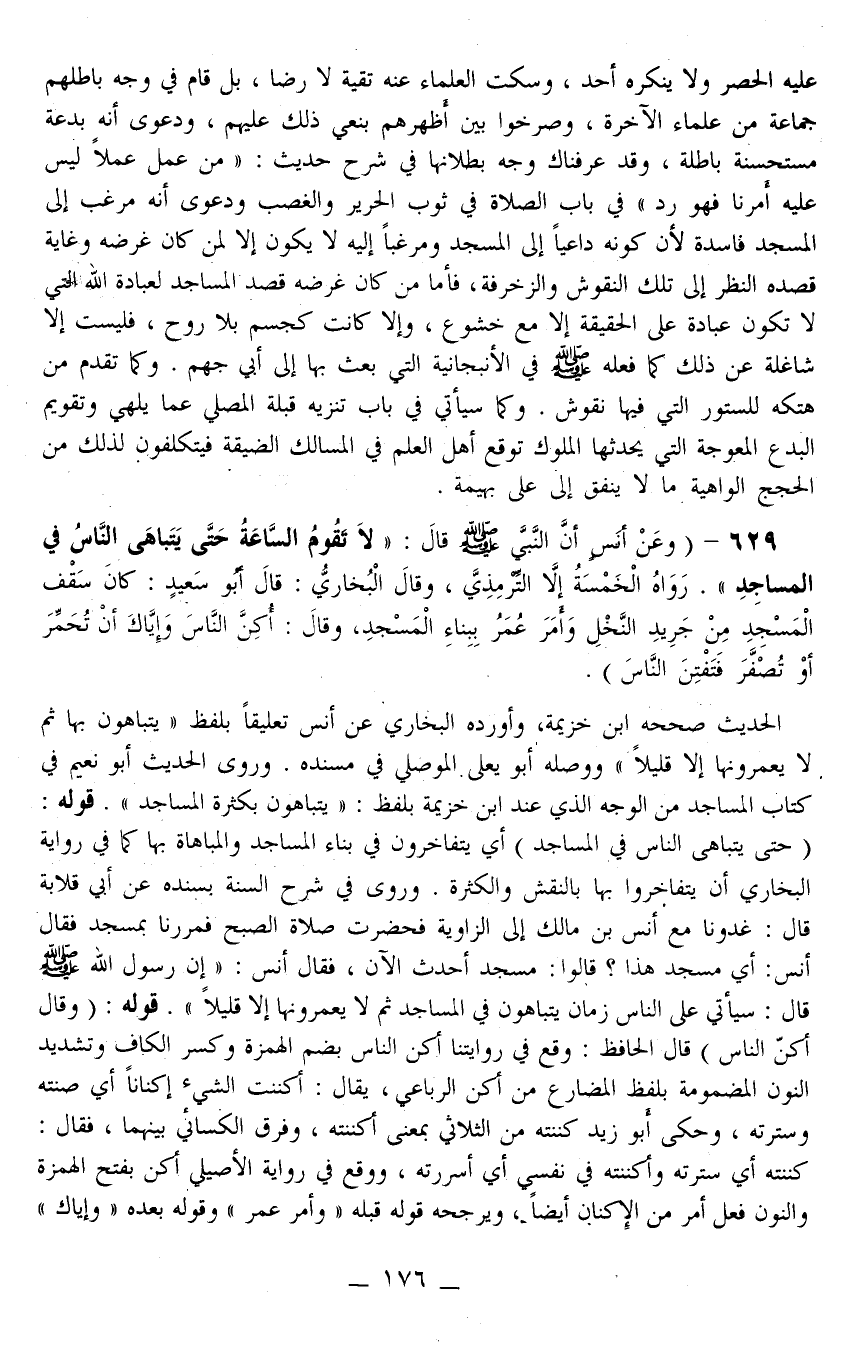 عليه الحصر ولا ينكره أحد ، وسكت العلماء عنه تقية لا رضا ، بل قام في وجه باطلهم
جماعة من علماء الآخرة ، وصرخوا بين أَظهرهم بنعي ذلك عليهم ، ودعوى أنه بدعة
مستحسنة باطلة ، وقد عرفناك وجه بطلانها في شرح حديث : « من عمل عملاً ليس
عليه أَمرنا فهو رد » في باب الصلاة في ثوب الحرير والغصب ودعوى أنه مرغب إلى
المسجد فاسدة لأن كونه داعياً إلى المسجد ومرغباً إليه لا يكون إلا لمن كان غرضه وغاية
قصده النظر إلى تلك النقوش والزخرفة ، فأما من كان غرضه قصد المساجد لعبادة الله التي
لا تكون عبادة على الحقيقة إلا مع خشوع ، وإلا كانت كجسم بلا روح ، فليست إلا
شاغلة عن ذلك كما فعله ﷺ في الأنبجانية التي بعث بها إلى أبي جهم . وكما تقدم من
هتكه للستور التي فيها نقوش . وكما سيأتي في باب تنزيه قبلة المصلي عما يلهي وتقويم
البدع المعوجة التي يحدثها الملوك توقع أهل العلم في المسالك الضيقة فيتكلفون لذلك من
الحجج الواهية ما لا ينفق إلى على بهيمة .
٦٢٩ – ( وعَنْ أنَسٍ أنَّ النَّبيَّ ﷺ قالَ : « لاَ تَقُومُ السَّاعَةُ حَتَّى يَتَباهَى النَّاسُ في
المساجِدِ » . رَوَاهُ الْخَمْسَةُ إلَّا التِّرْمِذيَّ ، وقالَ الْبُخاريُّ : قالَ أبُو سَعيدٍ : كانَ سَقْف
الْمَسْجِدِ مِنْ جَرِيدِ النَّخْلِ وَأَمَرَ عُمَرُ بِبِناءِ الْمَسْجِدِ، وقالَ : أُكِنَّ النَّاسَ وَإيَّاكَ أنْ تُحَمِّرَ
أوْ تُصْفَّرَ فَتَفْتِنَ النَّاسَ ) .
الحديث صححه ابن خزيمة، وأورده البخاري عن أنس تعليقاً بلفظ « يتباهون بها ثم
لا يعمرونها إلا قليلاً » ووصله أبو يعلى الموصلي في مسنده . وروى الحديث أبو نعيم في
كتاب المساجد من الوجه الذي عند ابن خزيمة بلفظ : « يتباهون بكثرة المساجد » . قوله :
( حتى يتباهى الناس في المساجد ) أي يتفاخرون في بناء المساجد والمباهاة بها كما في رواية
البخاري أن يتفاخروا بها بالنقش والكثرة . وروى في شرح السنة بسنده عن أبي قلابة
قال : غدونا مع أنس بن مالك إلى الزاوية فحضرت صلاة الصبح فمررنا بمسجد فقال
أنس: أي مسجد هذا ؟ قالوا: مسجد أحدث الآن ، فقال أنس : « إن رسول الله ﷺ
قال : سيأتي على الناس زمان يتباهون في المساجد ثم لا يعمرونها إلا قليلاً » . قوله : ( وقال
أكنّ الناس ) قال الحافظ : وقع في روايتنا أكن الناس بضم الهمزة وكسر الكاف وتشديد
النون المضمومة بلفظ المضارع من أكن الرباعي ، يقال : أكننت الشيء إكناناً أي صنته
وسترته ، وحكى أَبو زيد كننته من الثلاثي بمعنى أكننته ، وفرق الكسائي بينهما ، فقال :
كننته أي سترته وأكننته في نفسي أي أسررته ، ووقع في رواية الأصيلي أكن بفتح الهمزة
والنون فعل أمر من الإكنان أيضاً ، ويرجحه قوله قبله « وأمر عمر » وقوله بعده « وإياك »
— ١٧٦ —